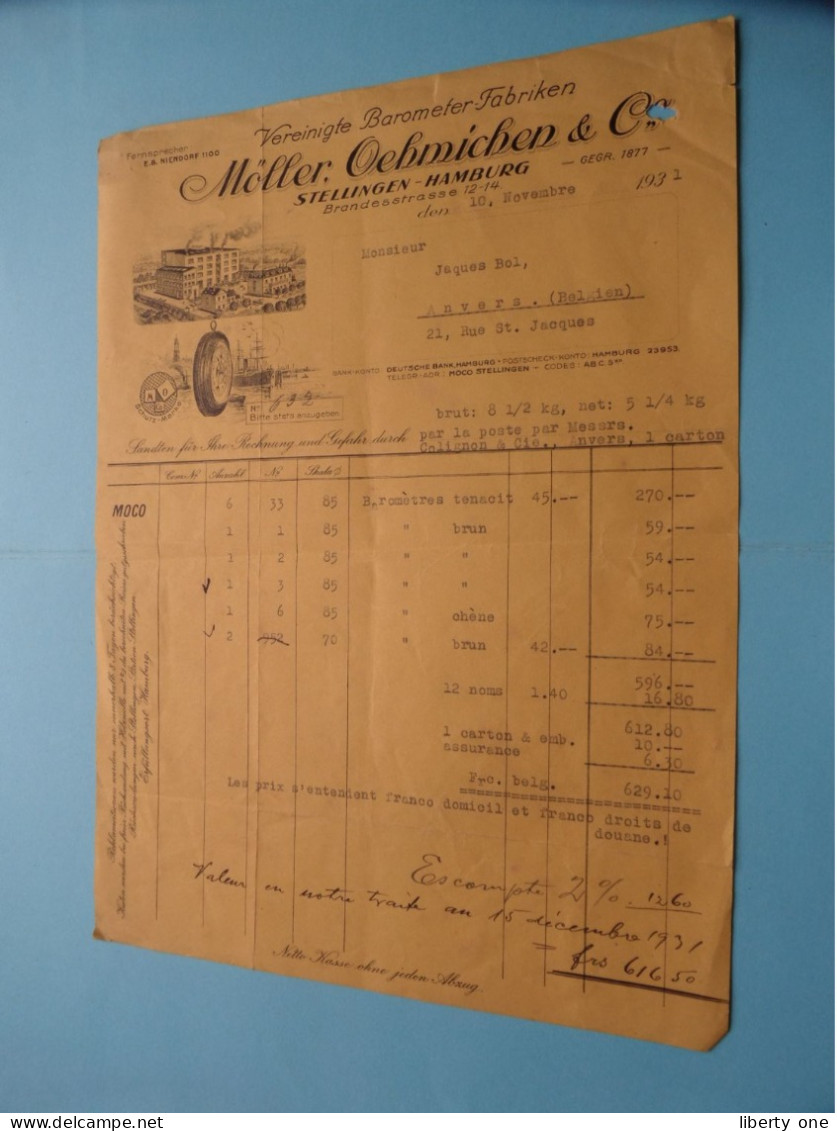 Vereinigte Barometer-Fabriken
Fernsprecher
E.8. NIENDORF 1100
Möller, Oehmichen & Co.
STELLINGEN - HAMBURG
— GEGR. 1877 —
Brandesstrasse 12-14.
den 10. Novembre 1931
Monsieur
Jaques Bol,
Anvers. (Belgien)
21, Rue St. Jacques
BANK-KONTO: DEUTSCHE BANK, HAMBURG - POSTSCHECK-KONTO: HAMBURG 23953.
TELEGR.-ADR.: MOCO STELLINGEN - CODES: A.B.C. 5th
M O
No 632
Bitte stets anzugeben.
brut: 8 1/2 kg, net: 5 1/4 kg
Sandten für Ihre Rechnung und Gefahr durch par la poste par Messrs.
Colignon & Cie., Anvers, 1 carton
Com. No Anzahl No Skala
MOCO
6 33 85 Baromètres tenacit 45.-- 270.--
1 1 85 " brun 59.--
1 2 85 " " 54.--
1 3 85 " " 54.--
1 6 85 " chêne 75.--
2 952 70 " brun 42.-- 84.--
596.--
12 noms 1.40 16.80
612.80
1 carton & emb. 10.--
assurance 6.30
Frc. belg. 629.10
Les prix s'entendent franco domicil et franco droits de
douane.!
Escompte 2% 12.60
Valeur en notre traite au 15 décembre 1931
= frs 616.50
Netto Kasse ohne jeden Abzug.
Reklamationen werden nur innerhalb 8 Tagen berücksichtigt.
Erfüllungsort Hamburg.
liberty one